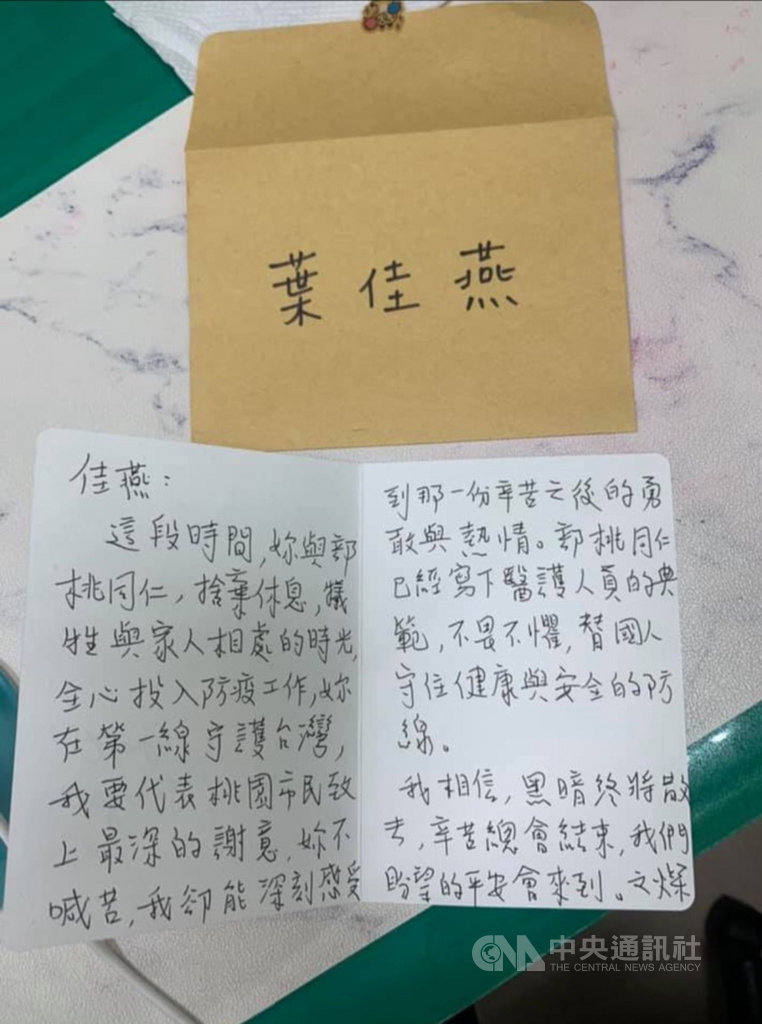 葉佳燕
佳燕：
這段時間，妳與部
桃同仁，捨棄休息，犧
牲與家人相處的時光，
全心投入防疫工作，妳
在第一線守護台灣，
我要代表桃園市民致
上最深的謝意，妳不
喊苦，我卻能深刻感受
到那一份辛苦之後的勇
敢與熱情。部桃同仁
已經寫下醫護人員的典
範，不畏不懼，替國人
守住健康與安全的防
線。
我相信，黑暗終將散
去，辛苦總會結束，我們
盼望的平安會來到。文燦
CNA 中央通訊社
THE CENTRAL NEWS AGENCY